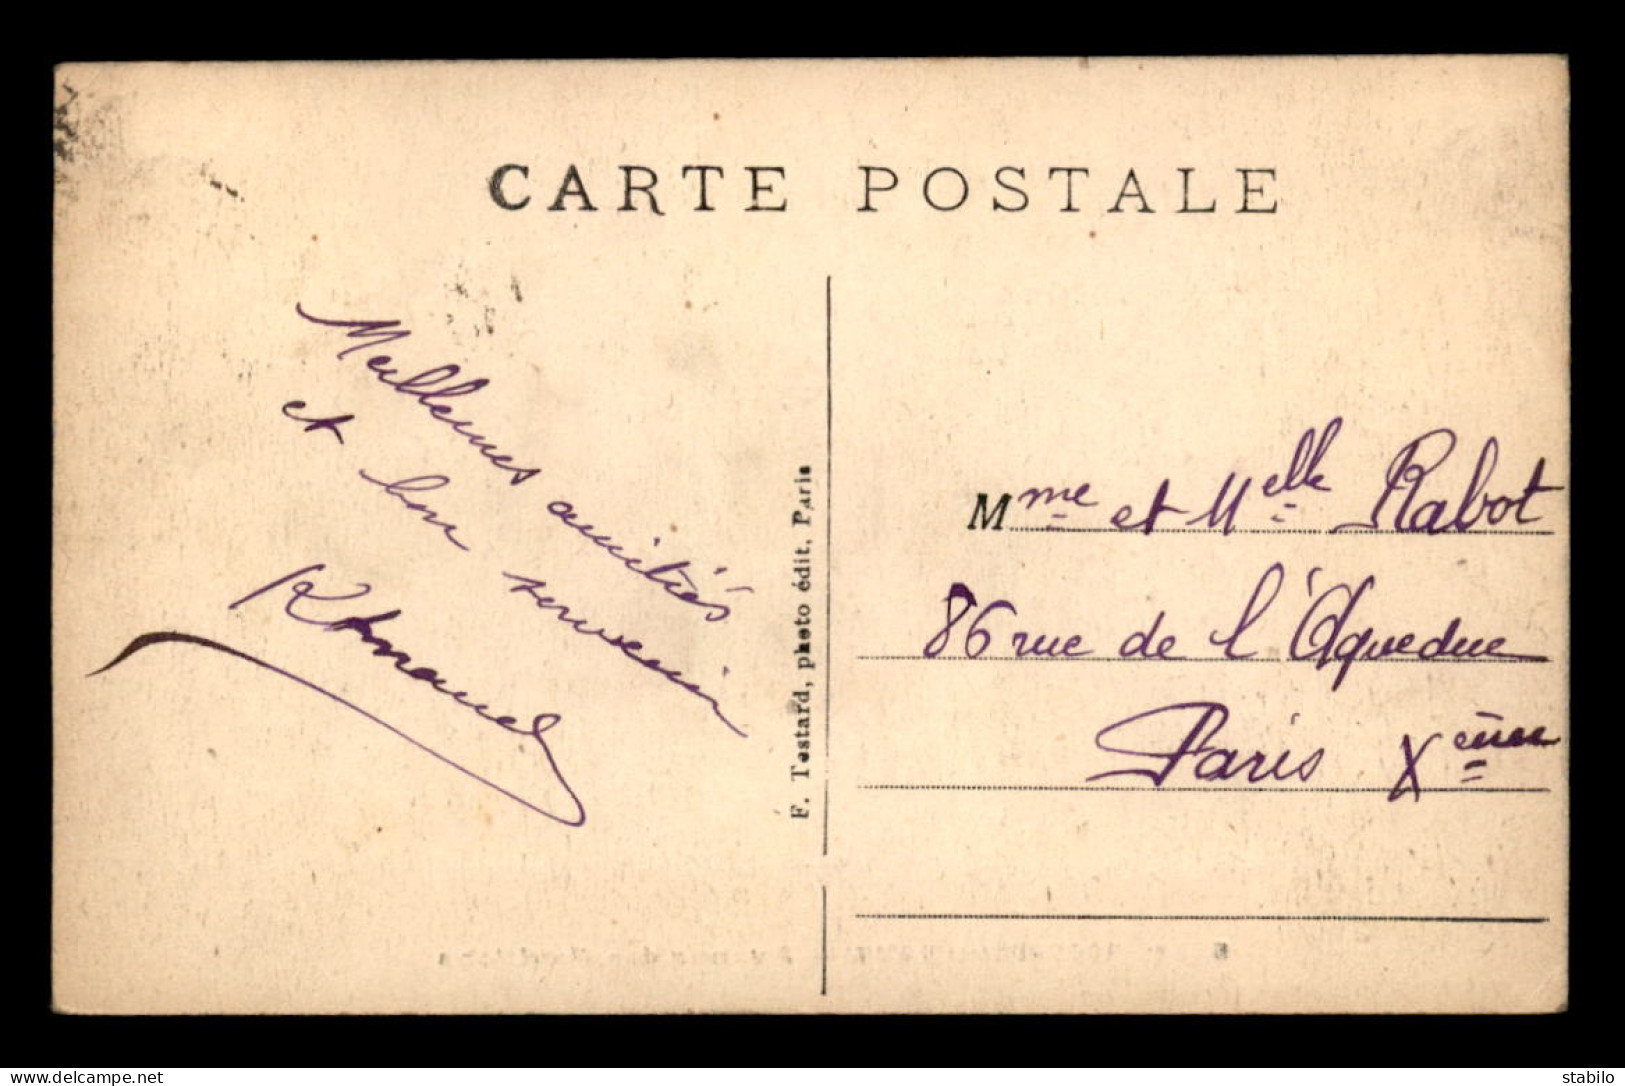 CARTE POSTALE
Meilleures amitiés
et bon souvenir
F. Testard, photo édit. Paris
Mme et Melle Rabot
86 rue de l'Aqueduc
Paris Xème
www.delcampe.net
stabilo